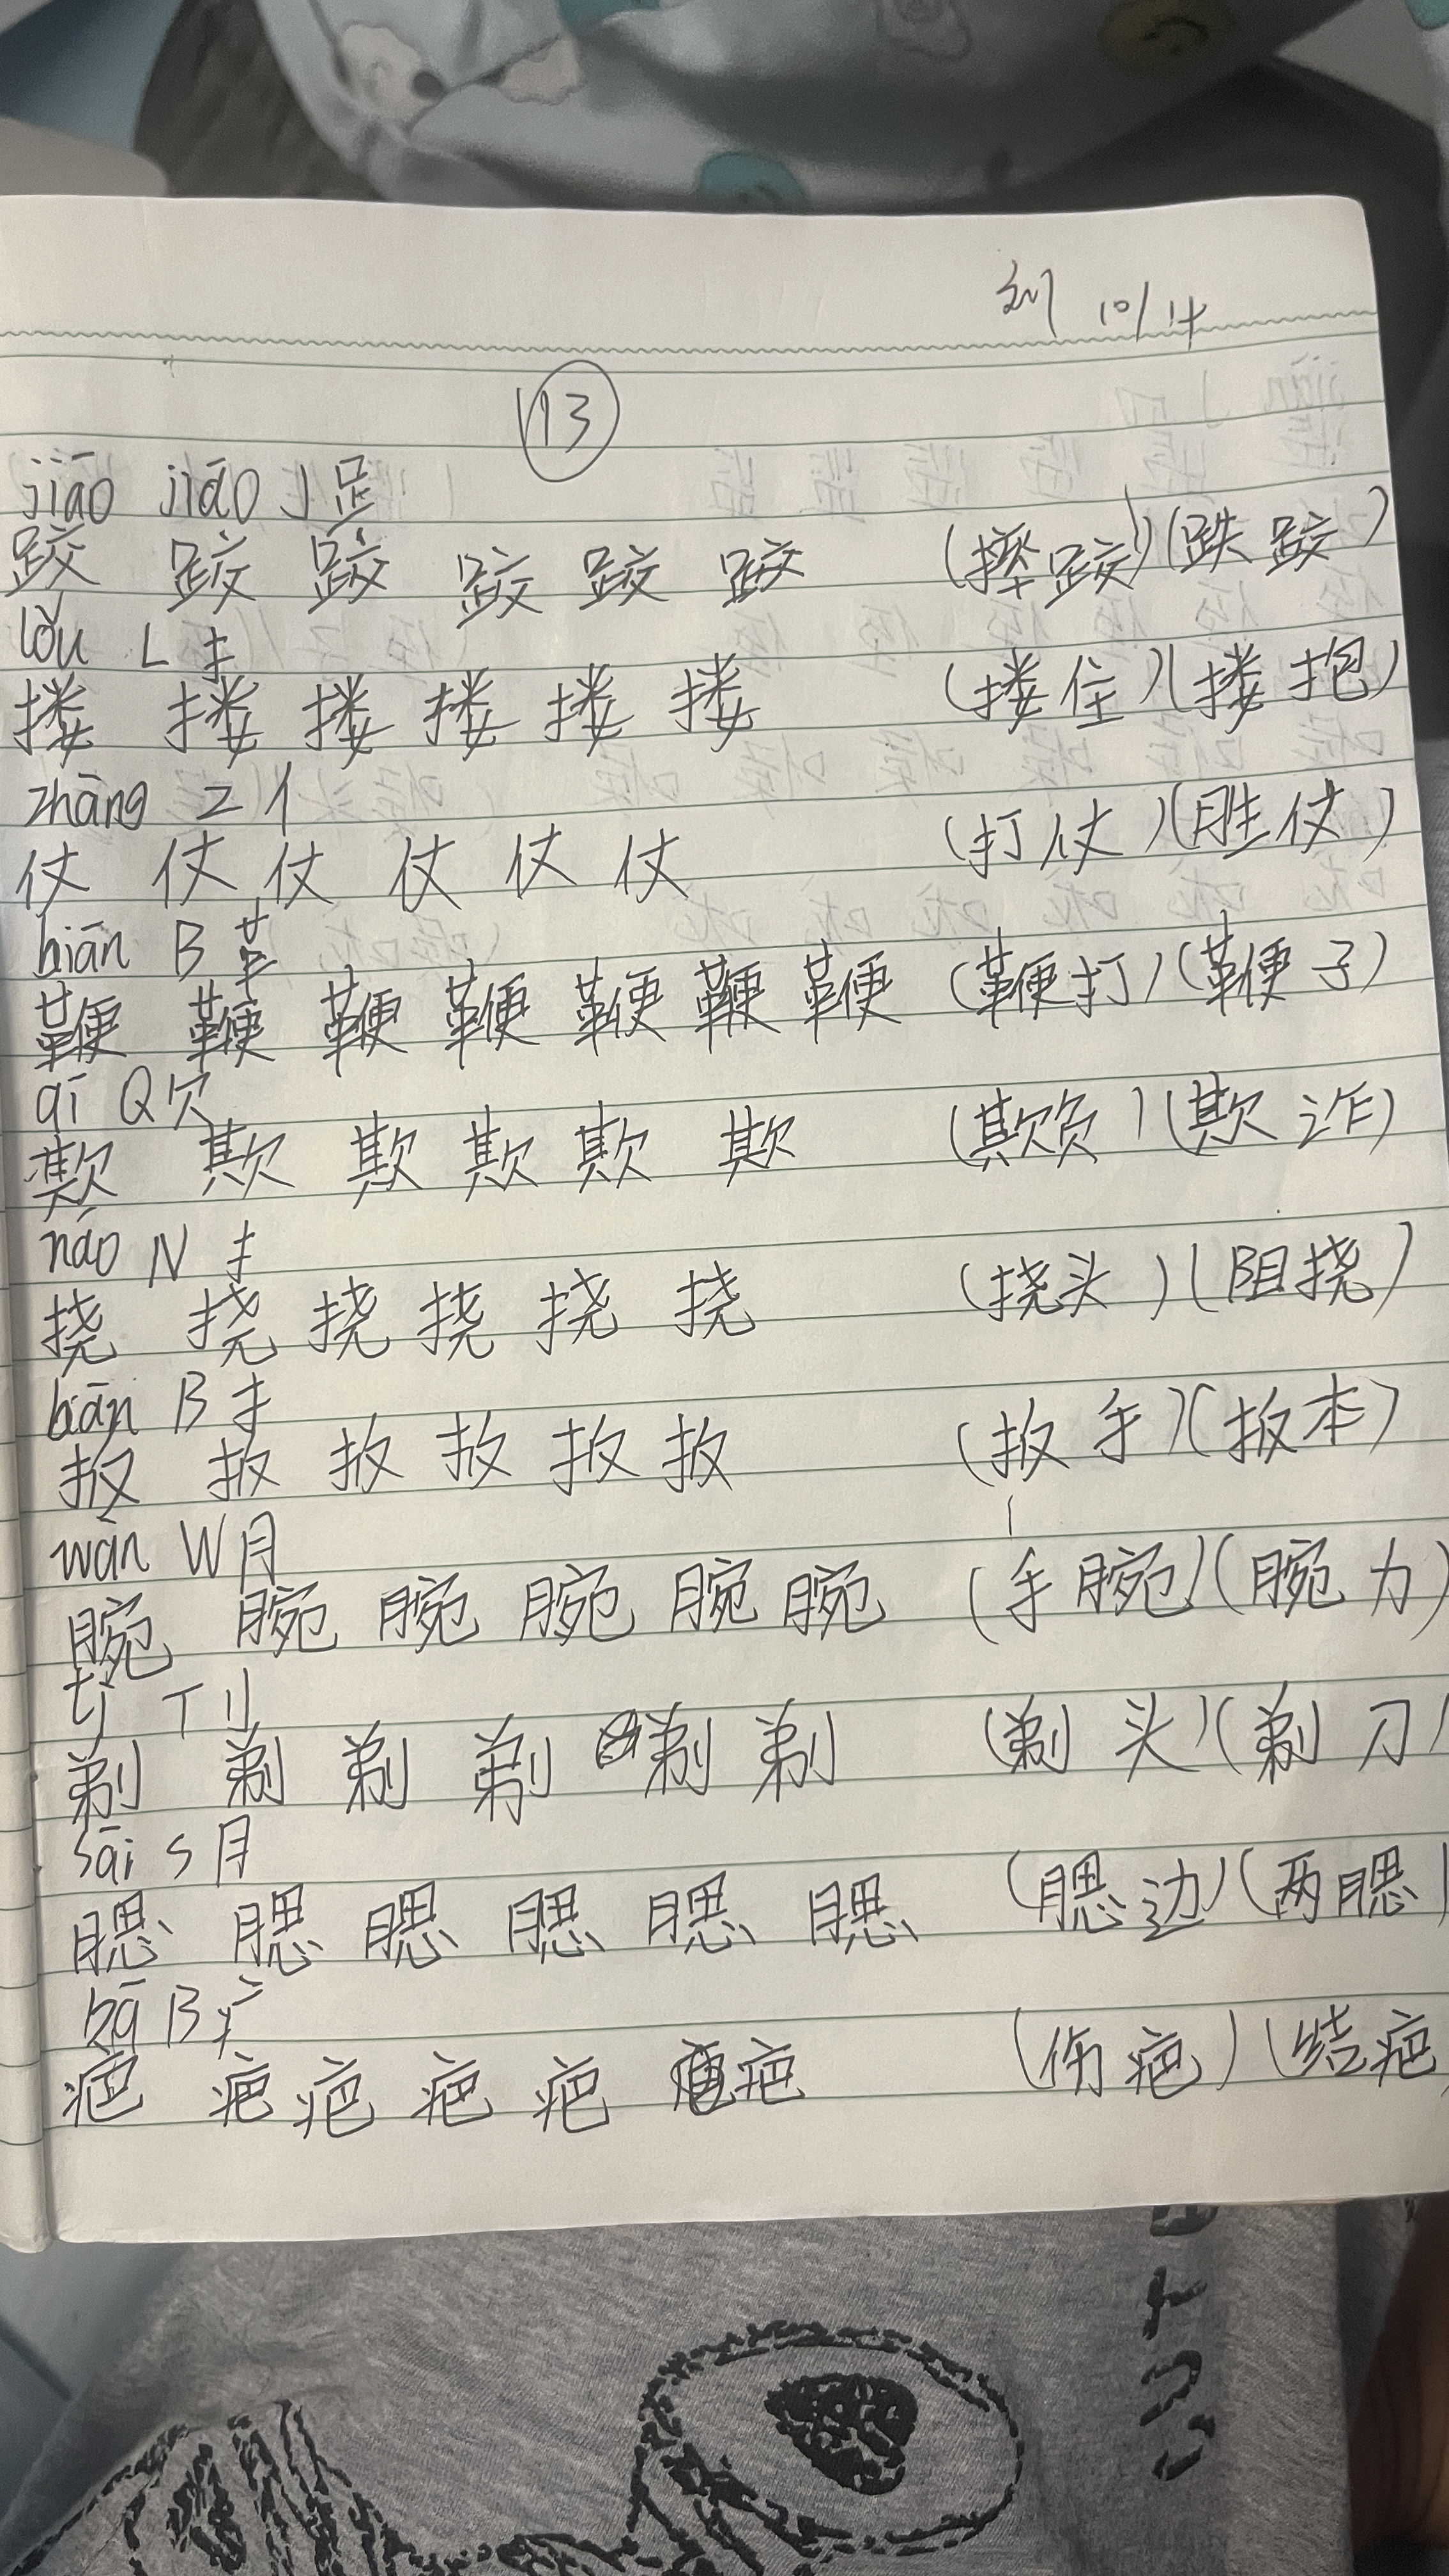 刘 10/14
13
jiāo jiāo J 足
跤 跤 跤 跤 跤 跤 (摔跤)(跌跤)
lǒu L 扌
搂 搂 搂 搂 搂 搂 (搂住)(搂抱)
zhàng Z 亻
仗 仗 仗 仗 仗 仗 (打仗)(胜仗)
biān B 革
鞭 鞭 鞭 鞭 鞭 鞭 鞭 (鞭打)(鞭子)
qī Q 欠
欺 欺 欺 欺 欺 欺 (欺负)(欺诈)
náo N 扌
挠 挠 挠 挠 挠 挠 (挠头)(阻挠)
bān B 扌
扳 扳 扳 扳 扳 扳 (扳手)(扳本)
wàn W 月
腕 腕 腕 腕 腕 腕 (手腕)(腕力)
tì T 刂
剃 剃 剃 剃 剃 剃 (剃头)(剃刀)
sāi S 月
腮 腮 腮 腮 腮 腮 (腮边)(两腮)
bā B 疒
疤 疤 疤 疤 疤 疤 (伤疤)(结疤)